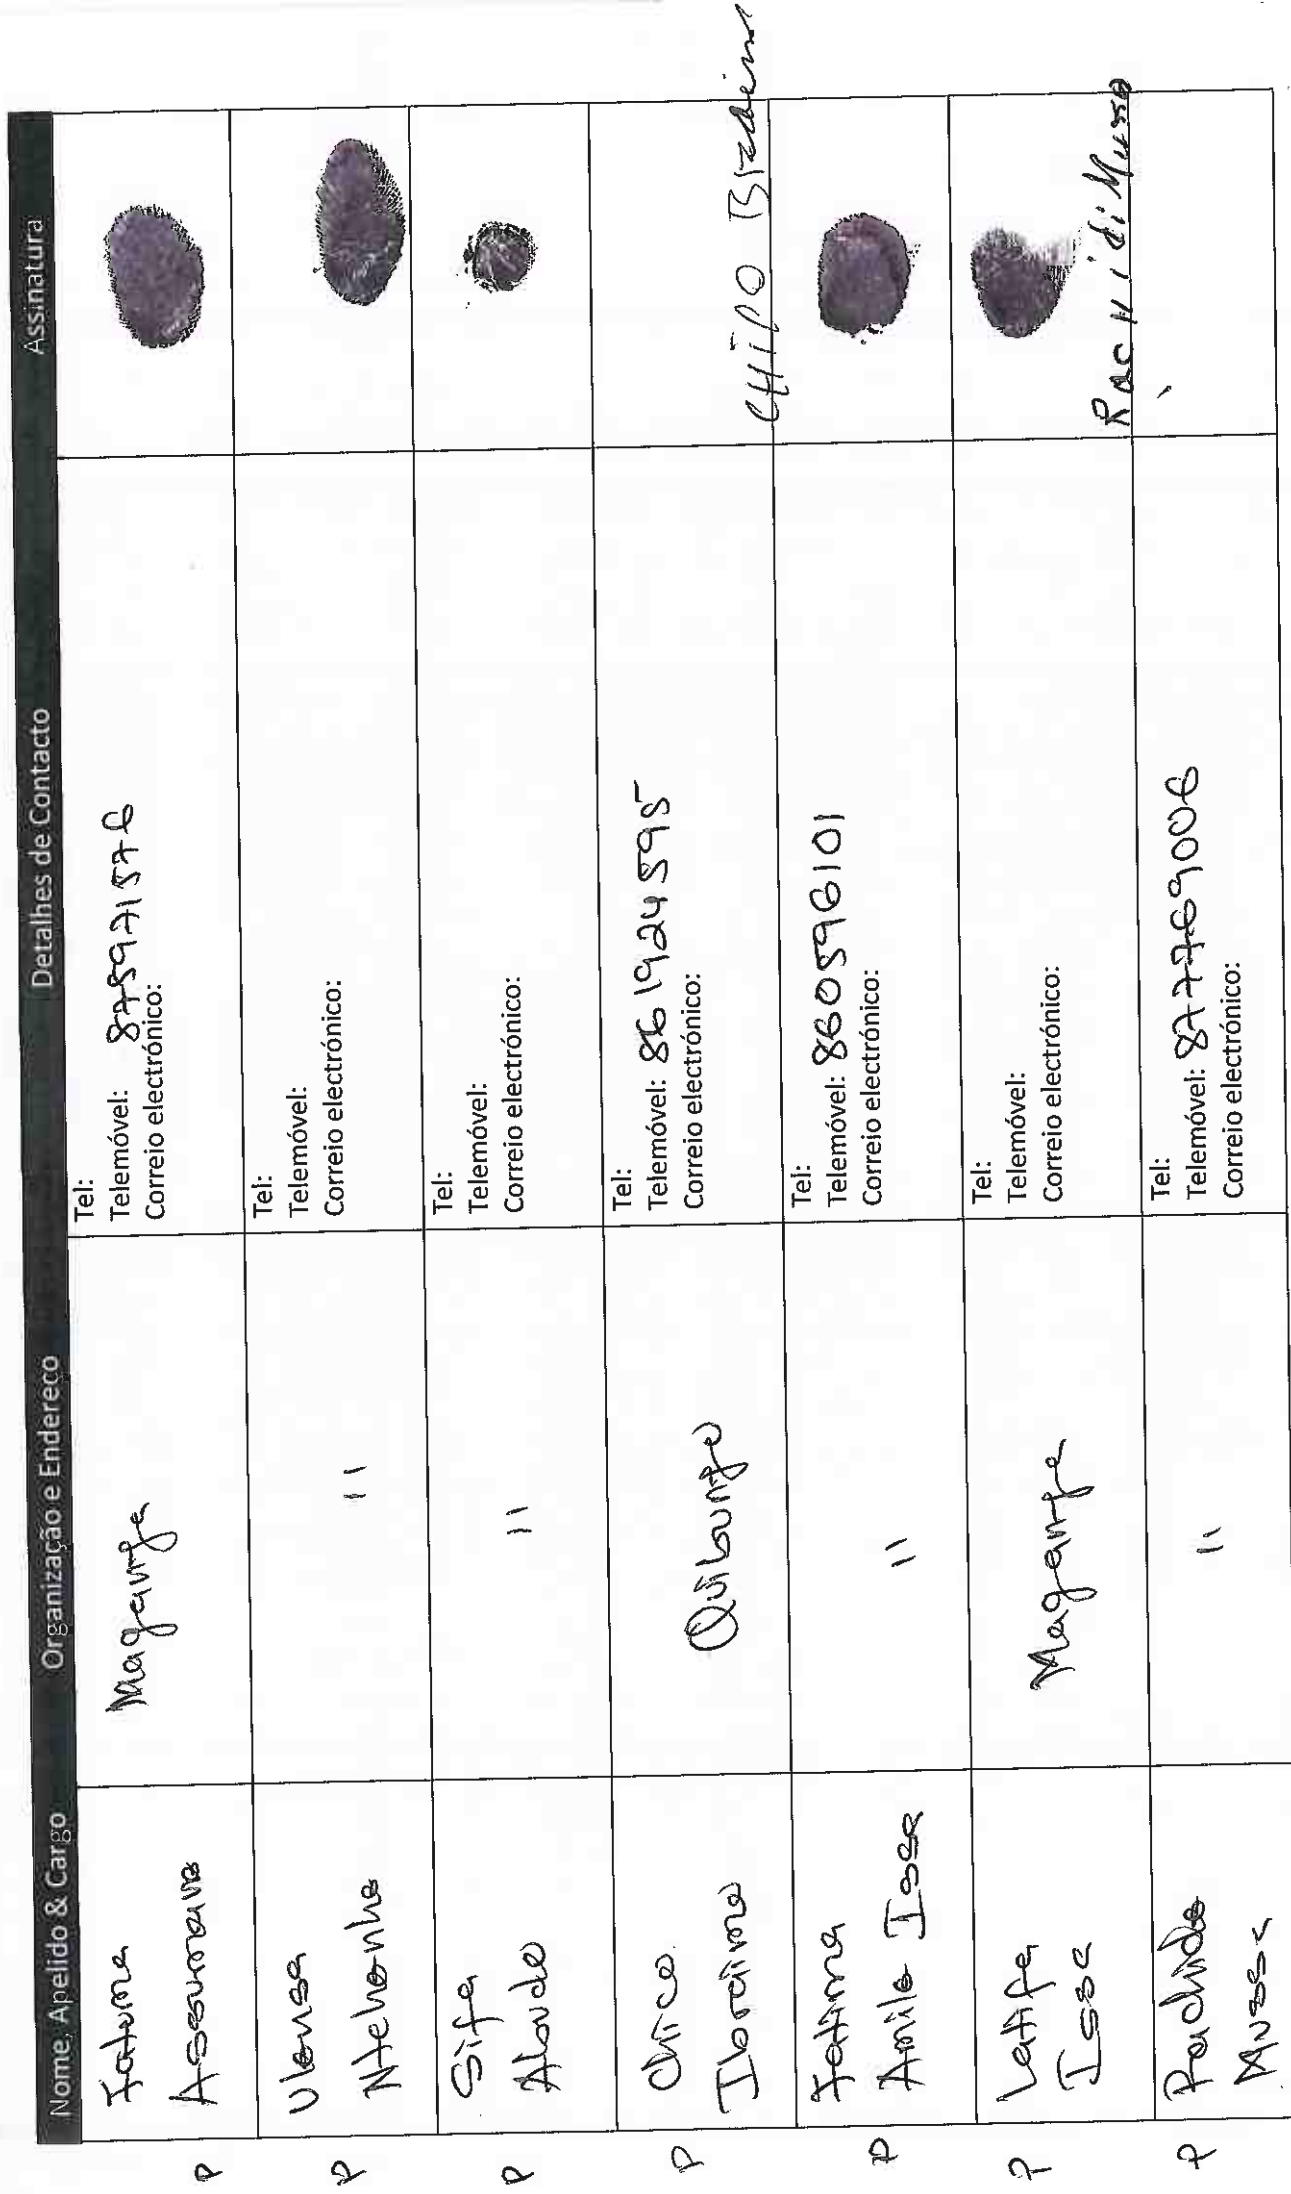 Nome, Apelido & Cargo Organização e Endereco Detalhes de Contacto Assinatura
P
Fatuma
Assumane
Maganja
Tel:
Telemóvel: 878971576
Correio electrónico:
P
Ntchonho
"
Tel:
Telemóvel:
Correio electrónico:
P
Sifa
"
Tel:
Telemóvel:
Correio electrónico:
P
Chico
Ibraimo
Tel:
Telemóvel: 861924595
Correio electrónico:
CHIPO
P
Fatima
Amile Issa
"
Tel:
Telemóvel: 860596101
Correio electrónico:
P
Latifa
Issa
Maganja
Tel:
Telemóvel:
Correio electrónico:
P
Rachide
Mussa
"
Tel:
Telemóvel: 877769006
Correio electrónico:
Rachidi Mussa